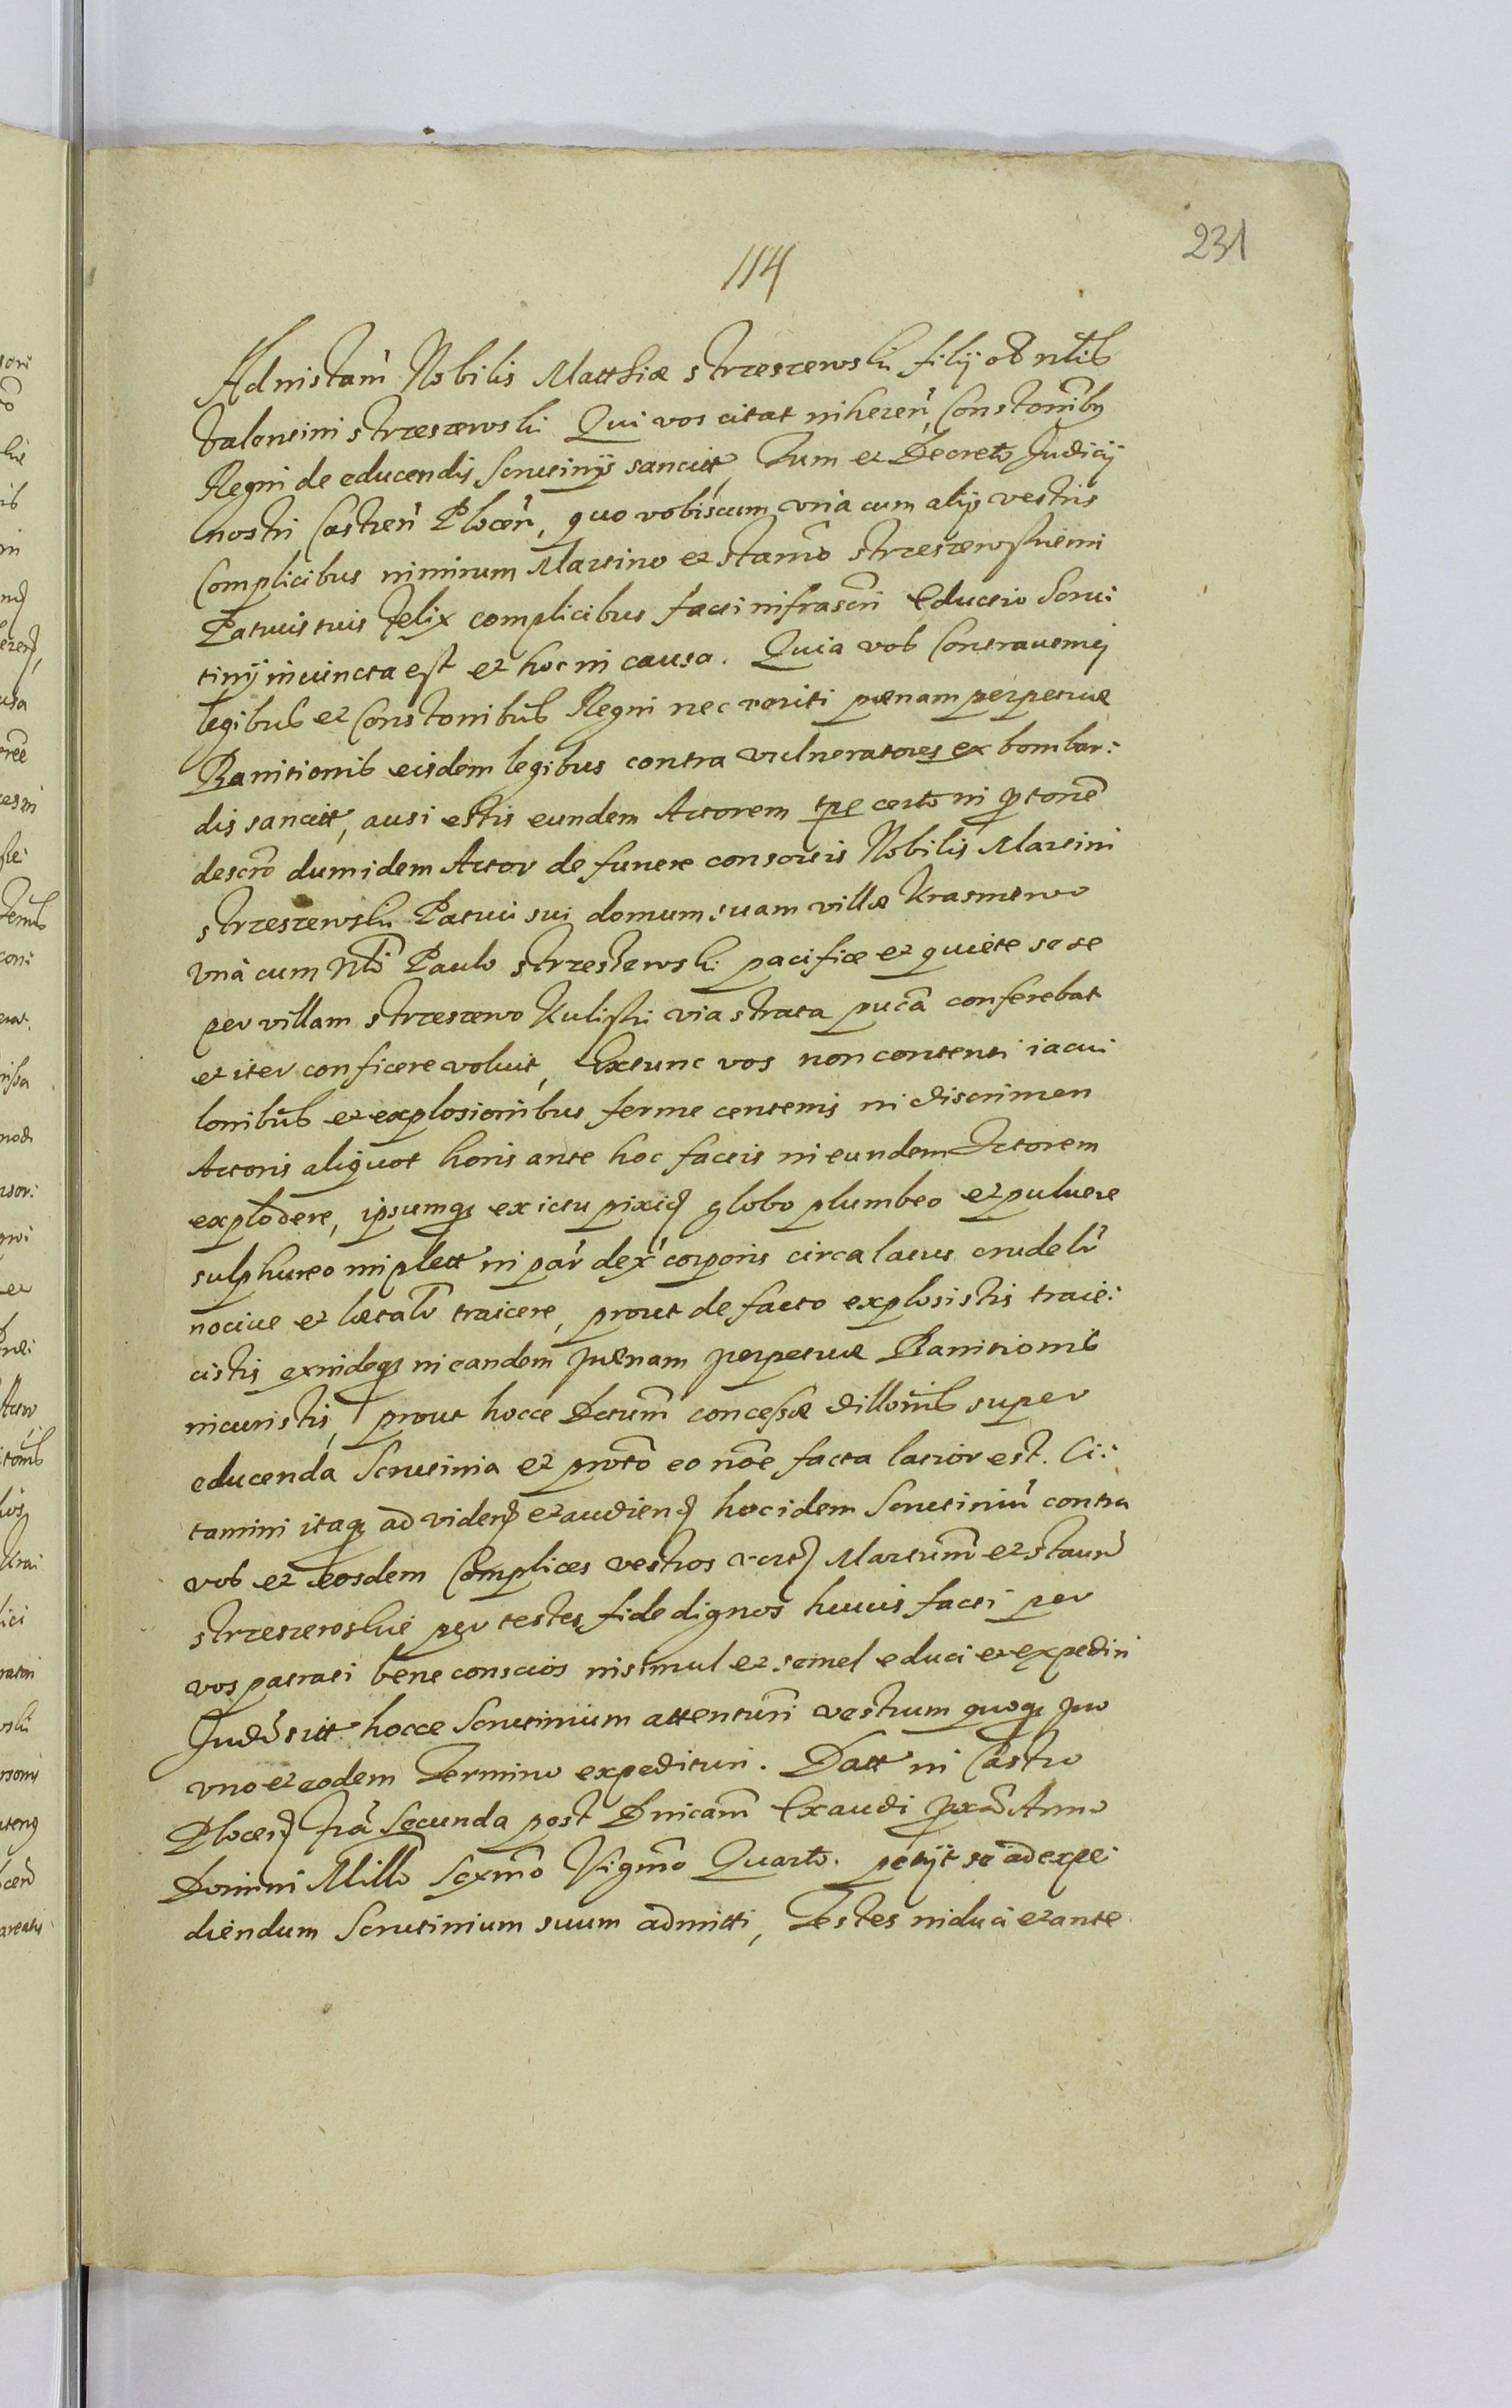 231
114
Ad instam̃ Nobilis Matthiæ Strzeszewski filij olb nlib
Valentini Strzeszewski Qui vos citat inheren̄, Constonib9
Regni de educendis Scrutinijs sancitt, Tum et Decreto Judicij
nostri Castren̄ Plocen̄, quo vobiscum vna cum alijs vestris
Complicibus nimirum Martino et Stan̄o Strzeszewskiemi
Patruis tuis Felix complicibus facti infrascri Eductio Scrui
tinij iniuncta est et hoc in causa. Quia vos Contraueniēn
legibus et Constonibus Regni nec veriti pœnam perpetuæ
Banitionis eisdem legibus contra vulneratores ex bombar:
dis sancitt, ausi estis eundem Actorem tpe certo in ptone
descro dum idem Actor de funere consortis Nobilis Martini
Strzeszewski Patrui sui domum suam villæ Krasniewo
vnà cum Nlī Paulo Strzeszewski pacifice et quiete se se
per villam Strzeszewo Kuliski via strata pucā conferebat
et iter conficere voluit, Extunc vos non contenti iacui
lonibus et explosionibus ferme centenis in discrimen
Actoris aliquot horis ante hoc factis in eundem Actorem
explodere, ipsumq3 ex ictu pixid globo plumbeo et puluere
sulphureo implett in par̄ dex̄ corporis circa latus crudelr̄
nociue et lœtalr̄ traicere, prout de facto explosistis traie:
cistis exindeq3 in eandem pœnam perpetuæ Banitionis
incuristis, prout hocce Dctum̄ concessæ dillōnis super
educenda Scrutinia et proto eo noē facta latior est. Ci:
tamini itaq3 ad viden̄ et audien̄ hoc idem Scrutiniū contra
vos et eosdem Complices vestros Martinum et Stanū
Strzeszewskie per testes fide dignos huius facti per
vos patrati bene conscios insimul et semel educi et expediri
Judr̄ sitt hocce Scrutinium attenturi vestrum quoq3 pro
vno et eodem Termino expedituri. Datt in Castro
Plocen̄ Fra Secunda post Dnicam Exaudi px̄a Anno
Domini Millō Sexmō Vigmō Quarto. petijt se ad expe:
diendum Scrutinium suum admitti, Testes induci et ante